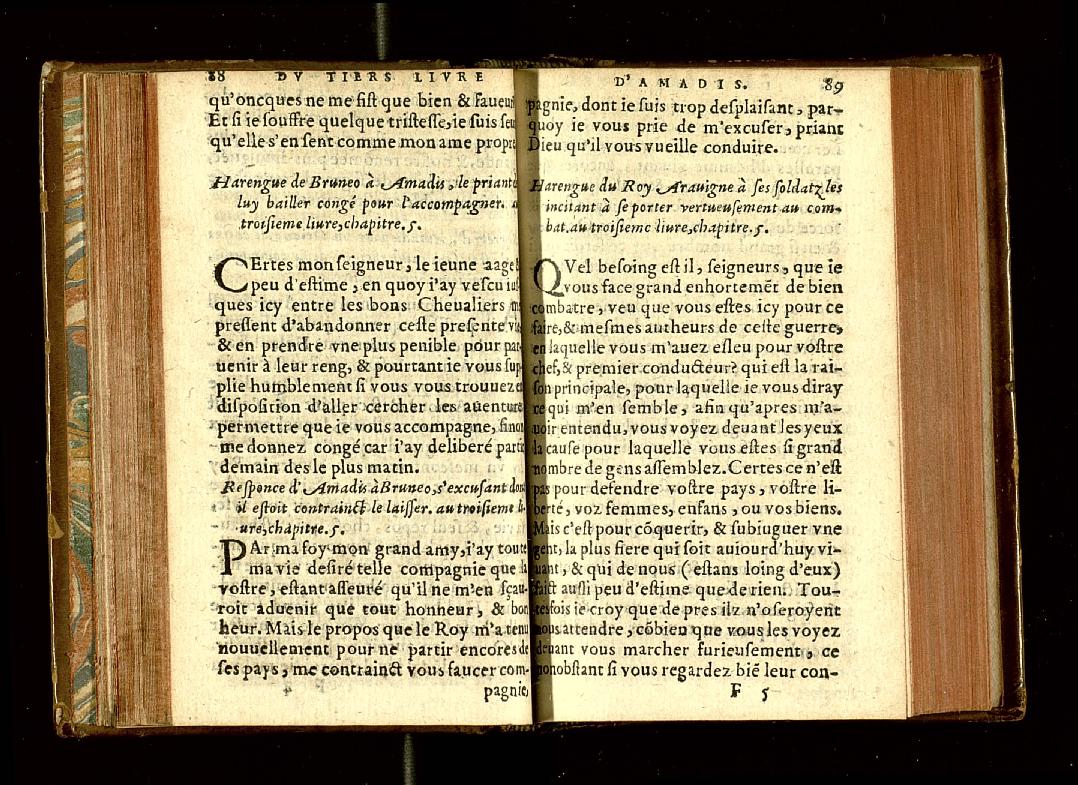 88 DV TIERS LIVRE
qu'oncques ne me fist que bien & faueur
Et si ie souffre quelque tristesse, ie suis seu
qu'elle s'en sent comme mon ame propre
Harengue de Bruneo à Amadis, le priant
luy bailler congé pour l'accompagner. a
troisieme liure, chapitre. 5.
CErtes mon seigneur, le ieune aage
peu d'estime, en quoy i'ay vescu ius
ques icy entre les bons Cheualiers m
pressent d'abandonner ceste presente vie
& en prendre vne plus penible pour par
uenir à leur reng, & pourtant ie vous sup
plie humblement si vous vous trouuez e
disposition d'aller cercher les auenture
permettre que ie vous accompagne, sinon
me donnez congé car i'ay deliberé parti
demain des le plus matin.
Responce d'Amadis à Bruneo, s'excusant dont
il estoit contrainct le laisser. au troisieme li-
ure, chapitre. 5.
PAr ma foy mon grand amy, i'ay toute
ma vie desiré telle compagnie que la
vostre, estant asseuré qu'il ne m'en sçau-
roit aduenir que tout honneur, & bon
heur. Mais le propos que le Roy m'a tenu
nouuellement pour ne partir encores de
ses pays, me contrainct vous faucer com-
pagnie,
D'AMADIS. 89
pagnie, dont ie suis trop desplaisant, par-
quoy ie vous prie de m'excuser, priant
Dieu qu'il vous vueille conduire.
Harengue du Roy Arauigne à ses soldatz les
incitant à se porter vertueusement au com-
bat. au troisieme liure, chapitre. 5.
QVel besoing est il, seigneurs, que ie
vous face grand enhortemēt de bien
combatre, veu que vous estes icy pour ce
faire, & mesmes autheurs de ceste guerre,
en laquelle vous m'auez esleu pour vostre
chef, & premier conducteur? qui est la rai-
son principale, pour laquelle ie vous diray
ce qui m'en semble, afin qu'apres m'a-
uoir entendu, vous voyez deuant les yeux
la cause pour laquelle vous estes si grand
nombre de gens assemblez. Certes ce n'est
pas pour defendre vostre pays, vostre li-
berté, voz femmes, enfans, ou vos biens.
Mais c'est pour cōquerir, & subiuguer vne
gent, la plus fiere qui soit auiourd'huy vi-
uant, & qui de nous (estans loing d'eux)
faict aussi peu d'estime que de rien. Tou-
tesfois ie croy que de pres ilz n'oseroyent
nous attendre, cōbien que vous les voyez
deuant vous marcher furieusement, ce
nonobstant si vous regardez biē leur con-
F 5